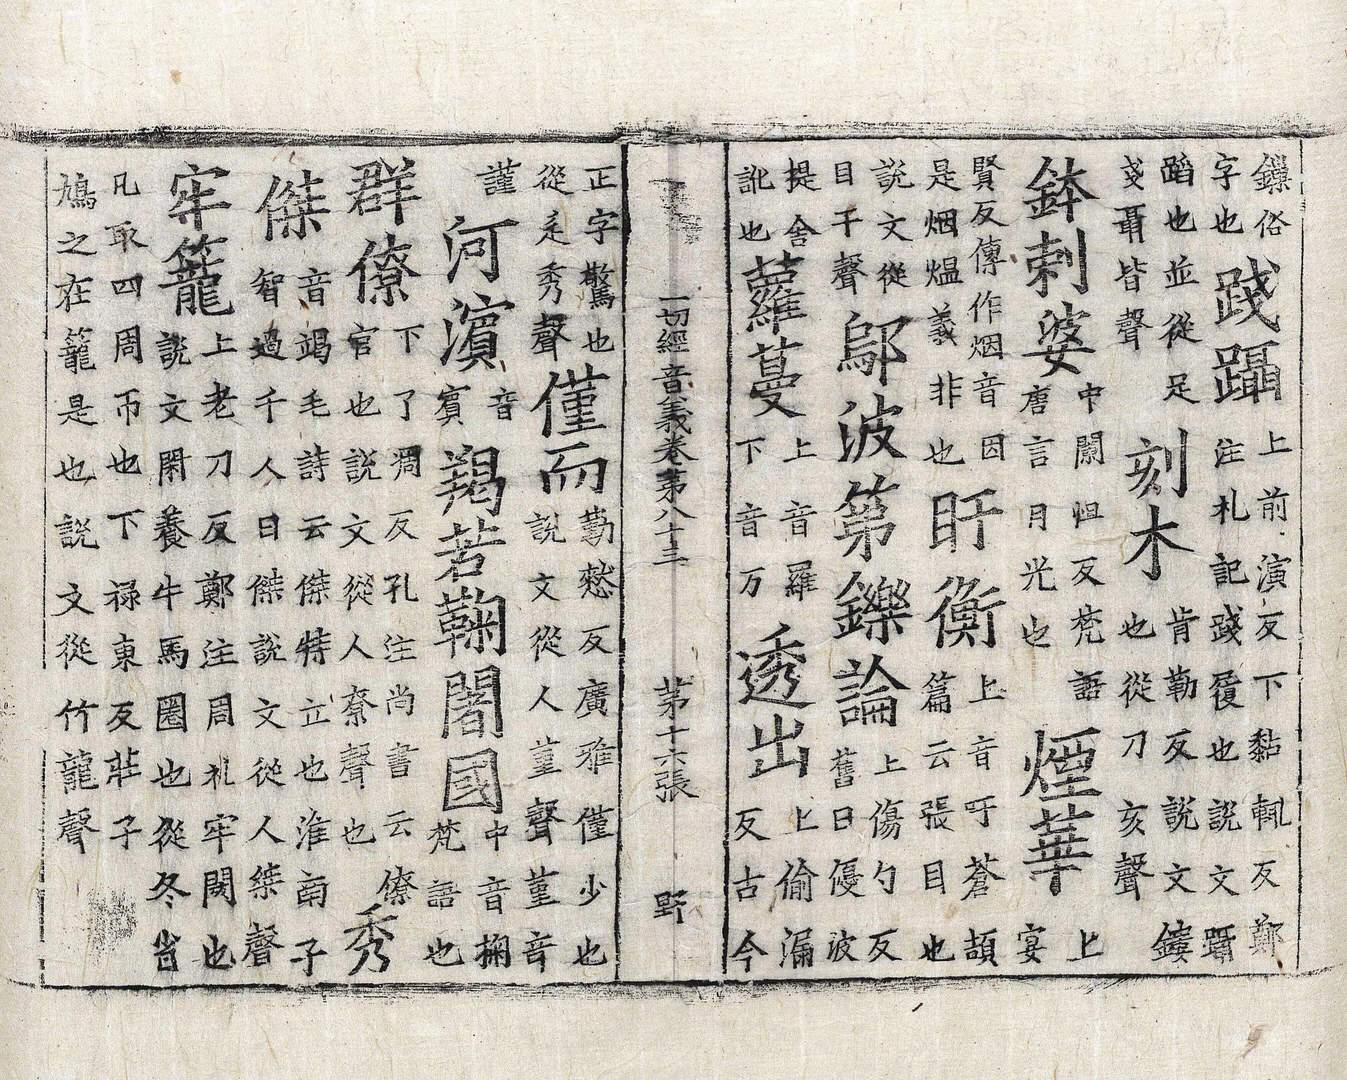 鑠俗字也踐躡上前演反下黏輒反鄭注札記踐履也說文躡
蹈也並從足戔聶皆聲刻木肯勒反說文鏤也從刀亥聲
鉢剌婆中闌怛反梵語唐言月光也煙華上宴
賢反傳作烟音因是烟熅義非也盱衡上音吁蒼頡篇云張目也
說文從目于聲鄔波第鑠論上傷勺反舊曰優波
提舍訛也蘿蔓上音羅下音万透出上偷漏反古今
一切經音義卷第八十三 第十六張 野
正字驚也從辵秀聲僅而勤憖反廣雅僅少也說文從人堇聲堇音
謹河濱音賓羯若鞠闍國中音掬梵語也
群僚下了凋反孔注尚書云僚官也說文從人尞聲也秀
傑音竭毛詩云傑特立也淮南子智過千人曰傑說文從人桀聲
牢籠上老刀反鄭注周礼牢閑也說文閑養牛馬圈也從冬省
凡取四周帀也下祿東反莊子鳩之在籠是也說文從竹龍聲